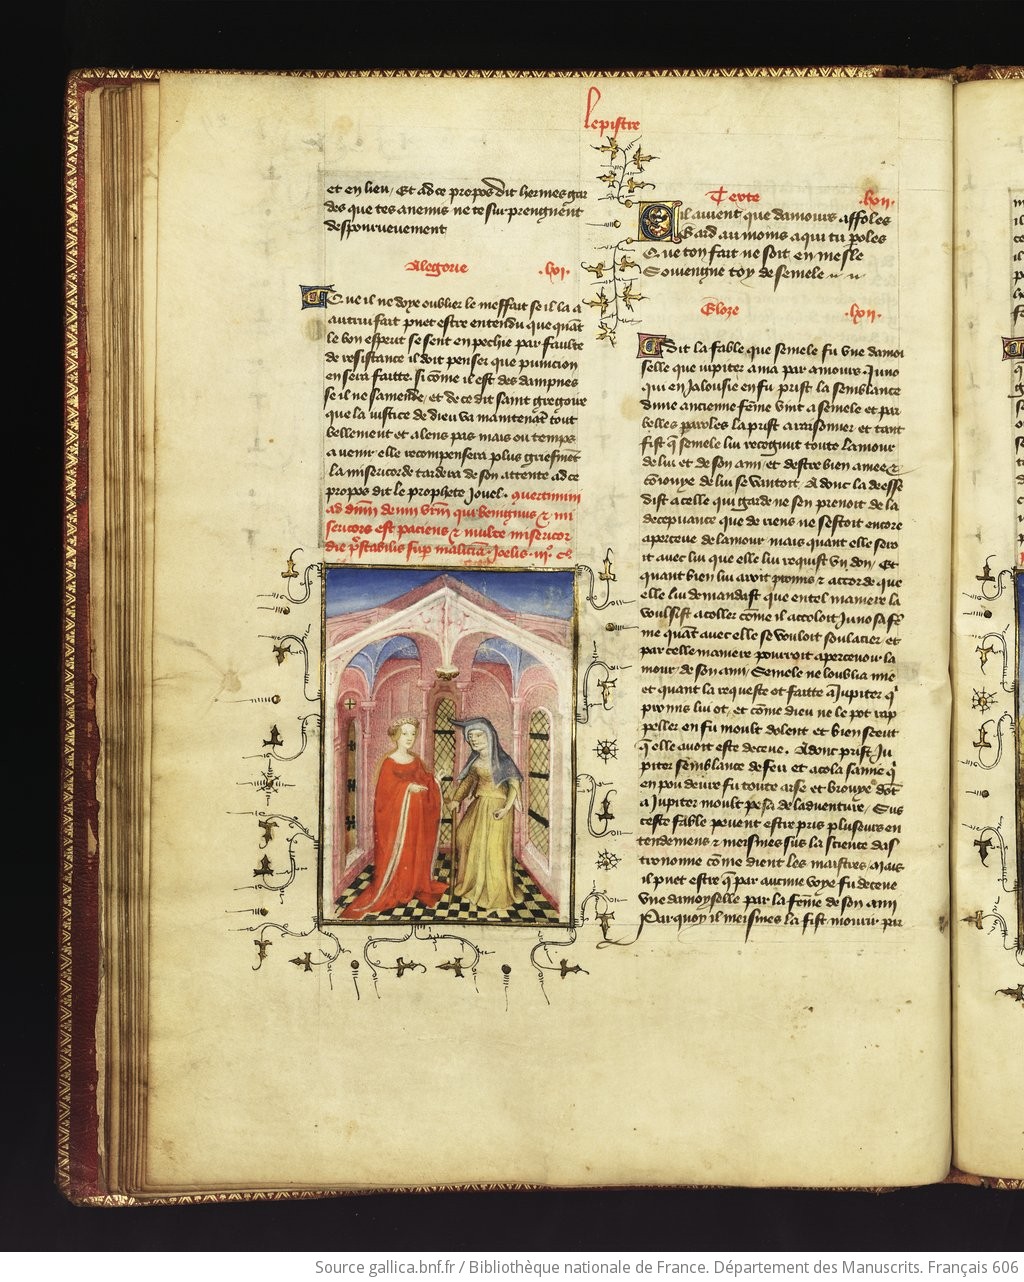 Lepistre
et en lieu / Et adce propos dit hermes gar
des que tes anemis ne te surprengnent
despourueuement
Alegorie .lxi.
Que il ne doye oublier le meffait se il la a
autrui fait puet estre entendu que quãt
le bon esperit se sent en pechie par faulte
de resistance il doit penser que punicion
en sera faitte. si cõme il est des dampnes
se il ne samende / et de ce dit saint gregoire
que la iustice de dieu va maintenãt tout
bellement et a lens pas mais ou temps
a venir elle recompensera plus griefmẽt
La misericorde tardera de son attente adce
propos dit le prophete Jouel.
ad dnm deum vrm qui benignus ⁊ mi
sericors est paciens ⁊ multe misericor
die p̃stabilis sup maliciã. Joelis .ijº. cº
Texte .lxij.
Cil auient que damours affoles
Gard au moins a qui tu poles
Que ton fait ne soit en mesle
Souuengne toy de semele
Gloze .lxij.
Ce dit la fable que semele fu vne damoi
selle que iupiter ama par amours. Juno
qui en Jalousie en fu prist la semblance
dune ancienne fẽme vint a semele et par
belles paroles la prist a arrisonner et tant
fist q̃ semele lui recognut toute lamour
de lui et de son ami / et destre bien amee ⁊
cõiouye de lui se vantoit. Adonc la deesse
dist a celle qui garde ne sen prenoit de la
deceuance que de riens ne sestoit encore
aperceue de lamour mais quant elle sero
it auec lui que elle lui requist vn don / Et
quant bien lui aroit promis ⁊ accorde que
elle lui demandast que en tel maniere la
voulsist acoller cõme il accoloit Juno sa fẽ
me quãt auec elle se vouloit soulacier et
par celle maniere pourroit apercevoir la
mour de son ami / Semele ne loublia mie
et quant la requeste ot faitte a Jupiter q̃
promis lui ot / et cõme dieu ne le pot rap
peller en fu moult dolent et bien sceut
q̃ elle auoit este deceue. Adonc prist Ju
piter semblance de feu et acola samie q̃
en pou deure fu toute arse et dõt
a Jupiter moult pesa de laduenture / Sus
ceste fable peuent estre pris pluseurs en
tendemens ⁊ meismes sus la science das
tronomie cõme dient les maistres. Mais
il puet estre q̃ par aucune voye fu deceue
vne damoyselle par la fẽme de son ami
Par quoy il meismes la fist mourir par
Source gallica.bnf.fr / Bibliothèque nationale de France. Département des Manuscrits. Français 606